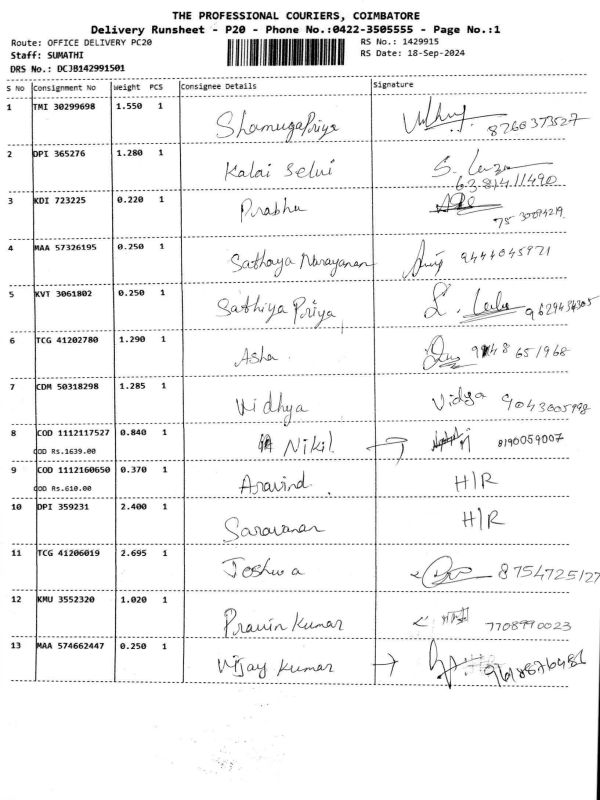 THE PROFESSIONAL COURIERS, COIMBATORE
Delivery Runsheet - P20 - Phone No.:0422-3505555 - Page No.:1
Route: OFFICE DELIVERY PC20 RS No.: 1429915
Staff: SUMATHI RS Date: 18-Sep-2024
DRS No.: DCJB142991501
S No Consignment No Weight PCS Consignee Details Signature
1 TMI 30299698 1.550 1 ShamugaPriya 8760373527
2 DPI 365276 1.280 1 Kalai Selvi S.
6381411490
3 KDI 723225 0.220 1 Prabhu
4 MAA 57326195 0.250 1 Sathaya Narayanan 9444045971
5 KVT 3061802 0.250 1 Sathiya Priya
6 TCG 41202780 1.290 1 Asha
7 CDM 50318298 1.285 1 Vidhya Vidya 9043005998
8 COD 1112117527 0.840 1 Nikil → 8190059007
COD Rs.1639.00
9 COD 1112160650 0.370 1 Aravind. H/R
COD Rs.610.00
10 DPI 359231 2.400 1 Saravanan H/R
11 TCG 41206019 2.695 1 Joshwa 8754725127
12 KMU 3552320 1.020 1 Pravin Kumar 7708990023
13 MAA 574662447 0.250 1 Vijay Kumar →